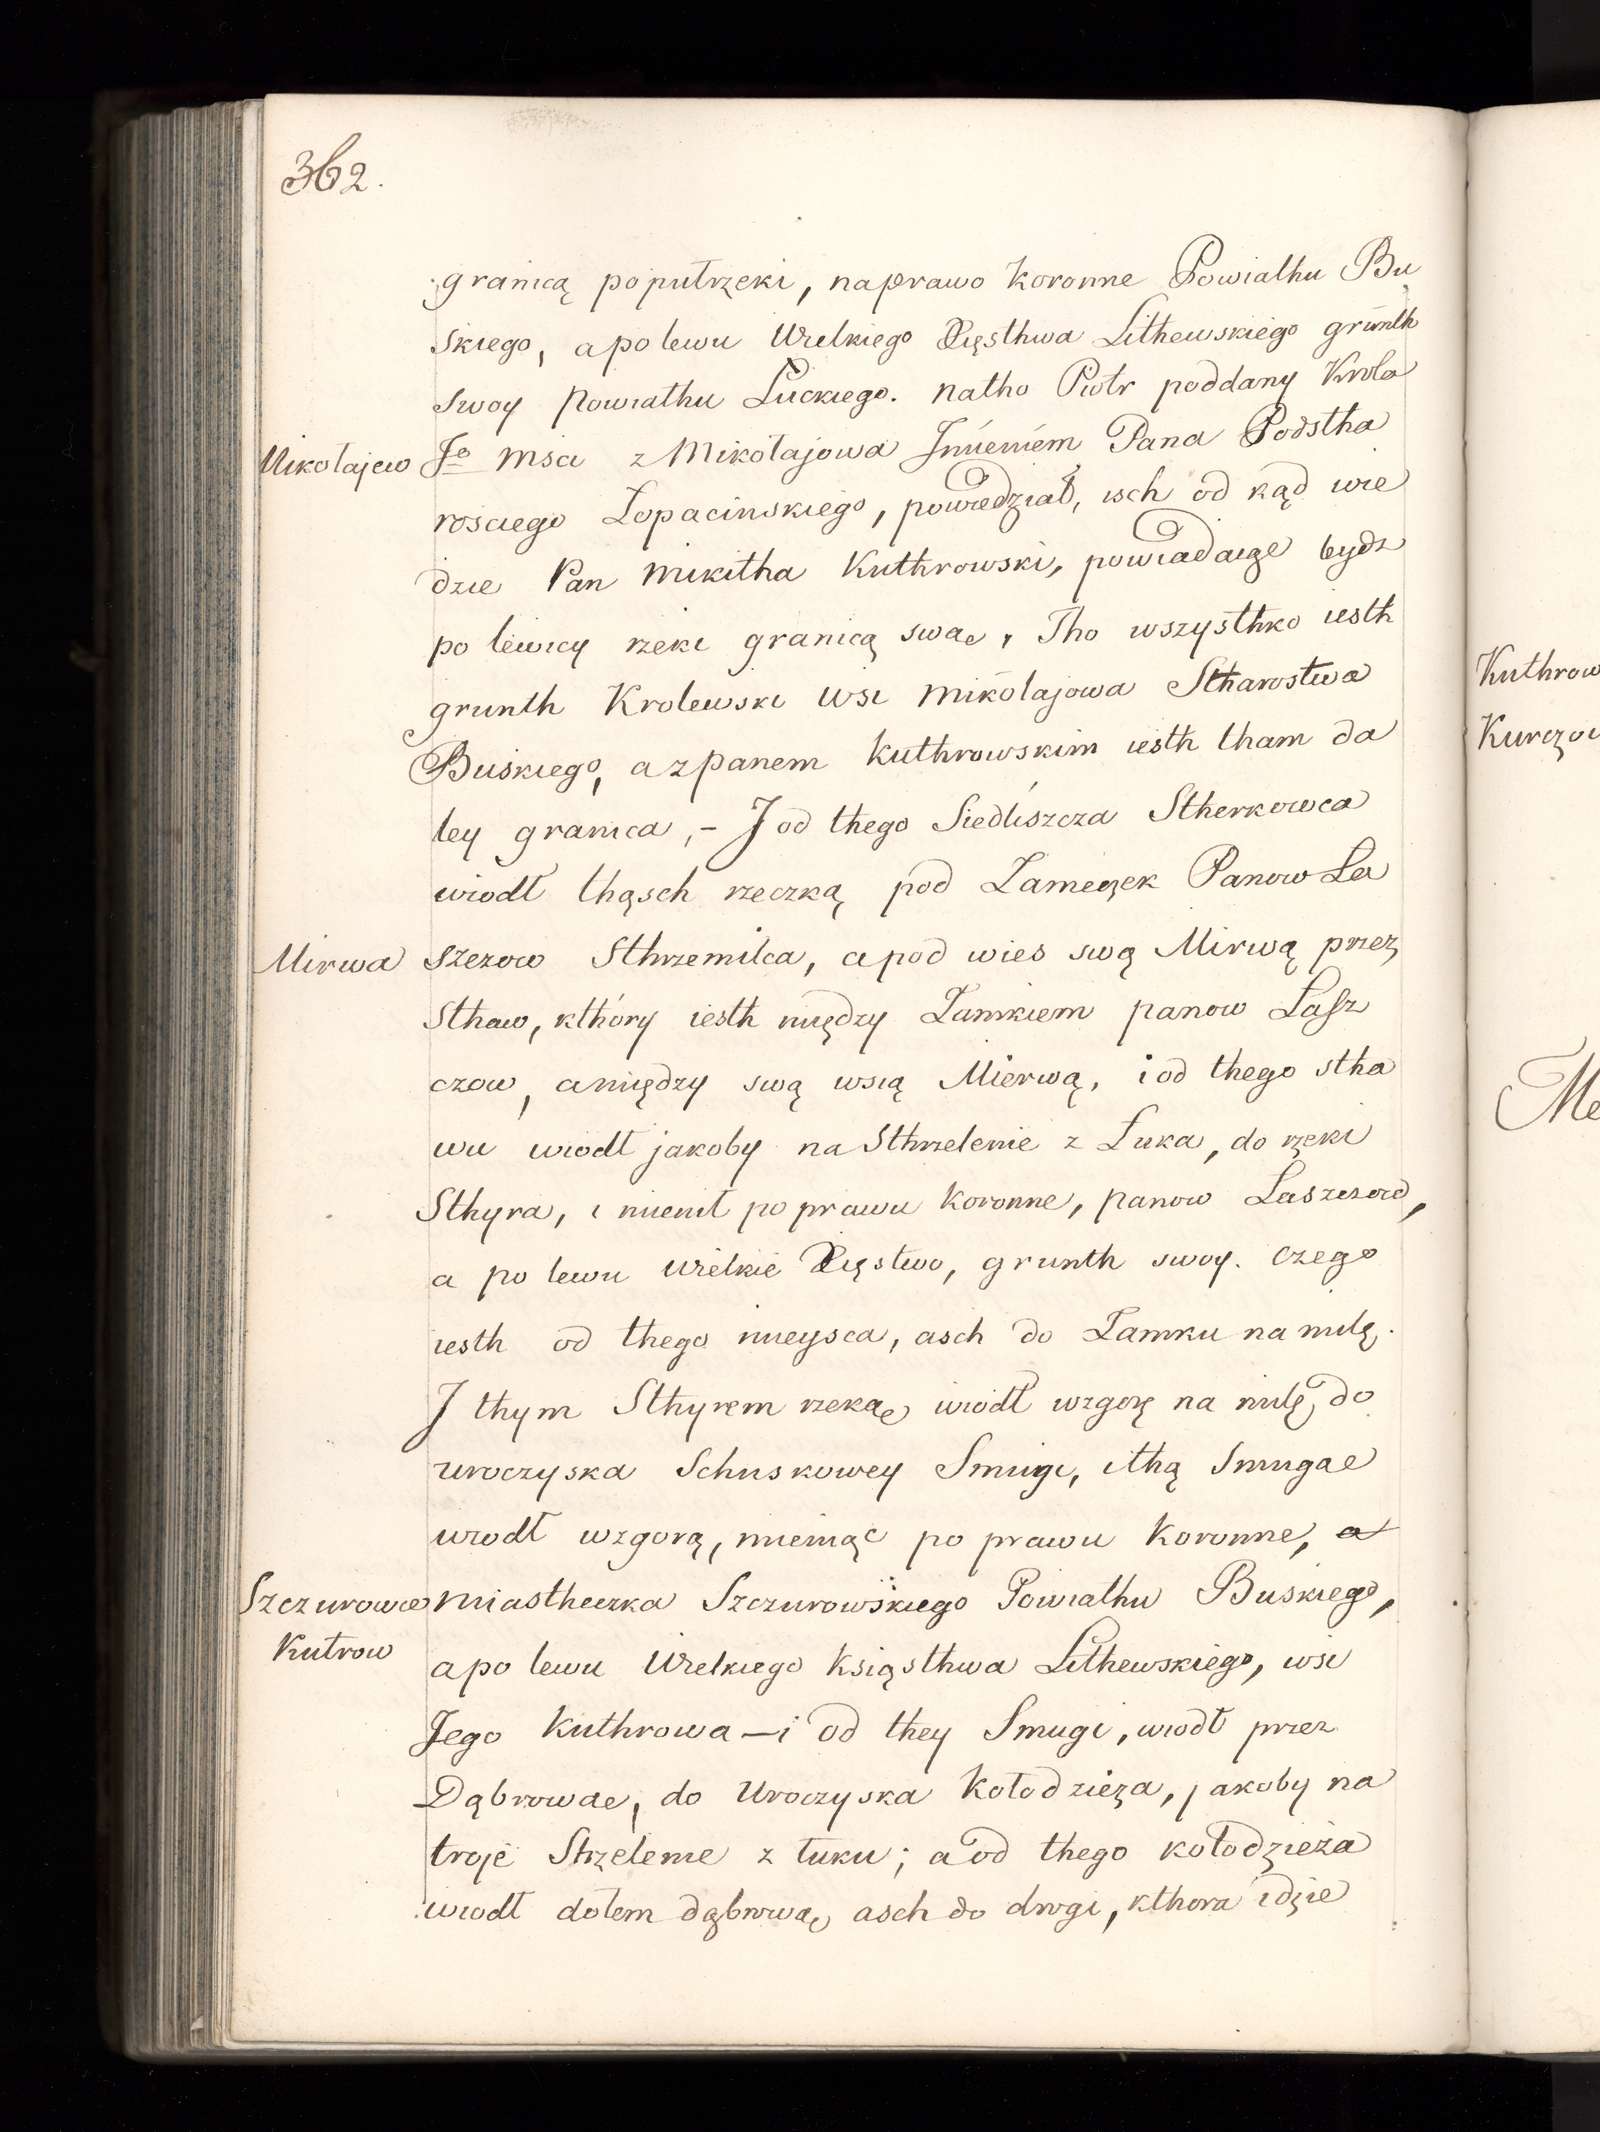 362.
granicą poputrzeki, naprawo koronne Powiathu Bu
skiego, apolewu Wielkiego Xięsthwa Lithewskiego grunth
swoy Powiathu Luckiego. natho Piotr poddany Krola
Mikołajew
Jo Msci z Mikołajowa Jmieniem Pana Podstha
rosciego Łopacinskiego, powiedział, isch od kąd wie
dzie Pan Mikitha Kuthrowski, powiadaize bydz
po lewicy rzeki granicą swae, Tho wszysthko iesth
grunth Krolewski Wsi Mikołajowa Stharostwa
Buskiego, azpanem kuthrowskim iesth tham da
ley granica,- J od thego Siedliszcza Stherkowca
wiodł thąsch rzeczką pod Zameczek Panow La
Mirwa
szczow Sthrzemilca, apod wies swą Mirwą przez
Sthaw, kthóry iesth między Zamkiem panow Lasz
czow, amiędzy swą wsią Mierwą, iod thego stha
wu wiodł jakoby na Sthrzelenie z Łuka, do rzeki
Sthyra, i mienił po prawu koronne, panow Laszczow,
a po lewu Wielkie Xięstwo, grunth swoy. Czego
iesth od thego mieysca, asch do Zamku na milę.
J thym Sthyrem rzekae wiodł wzgorę na milę, do
uroczyska Schuskowey Smugi, ithą Smugae
wiodł wzgorą, mieniąc po prawu koronne, a
Szczurowce
Miastheczka Szczurowskiego Powiathu Buskiego,
Kutrow
apo lewu Wielkiego Księsthwa Lithewskiego, wsi
Jego Kuthrowa – i od they Smugi, wiodł przez
Dąbrowae, do Uroczyska Kołodzieza, jakoby na
troje Strzelenie z łuku; a od thego kołodzieża
wiodł dołem dąbrowae, asch do drogi, kthora idzie
Kuthrow